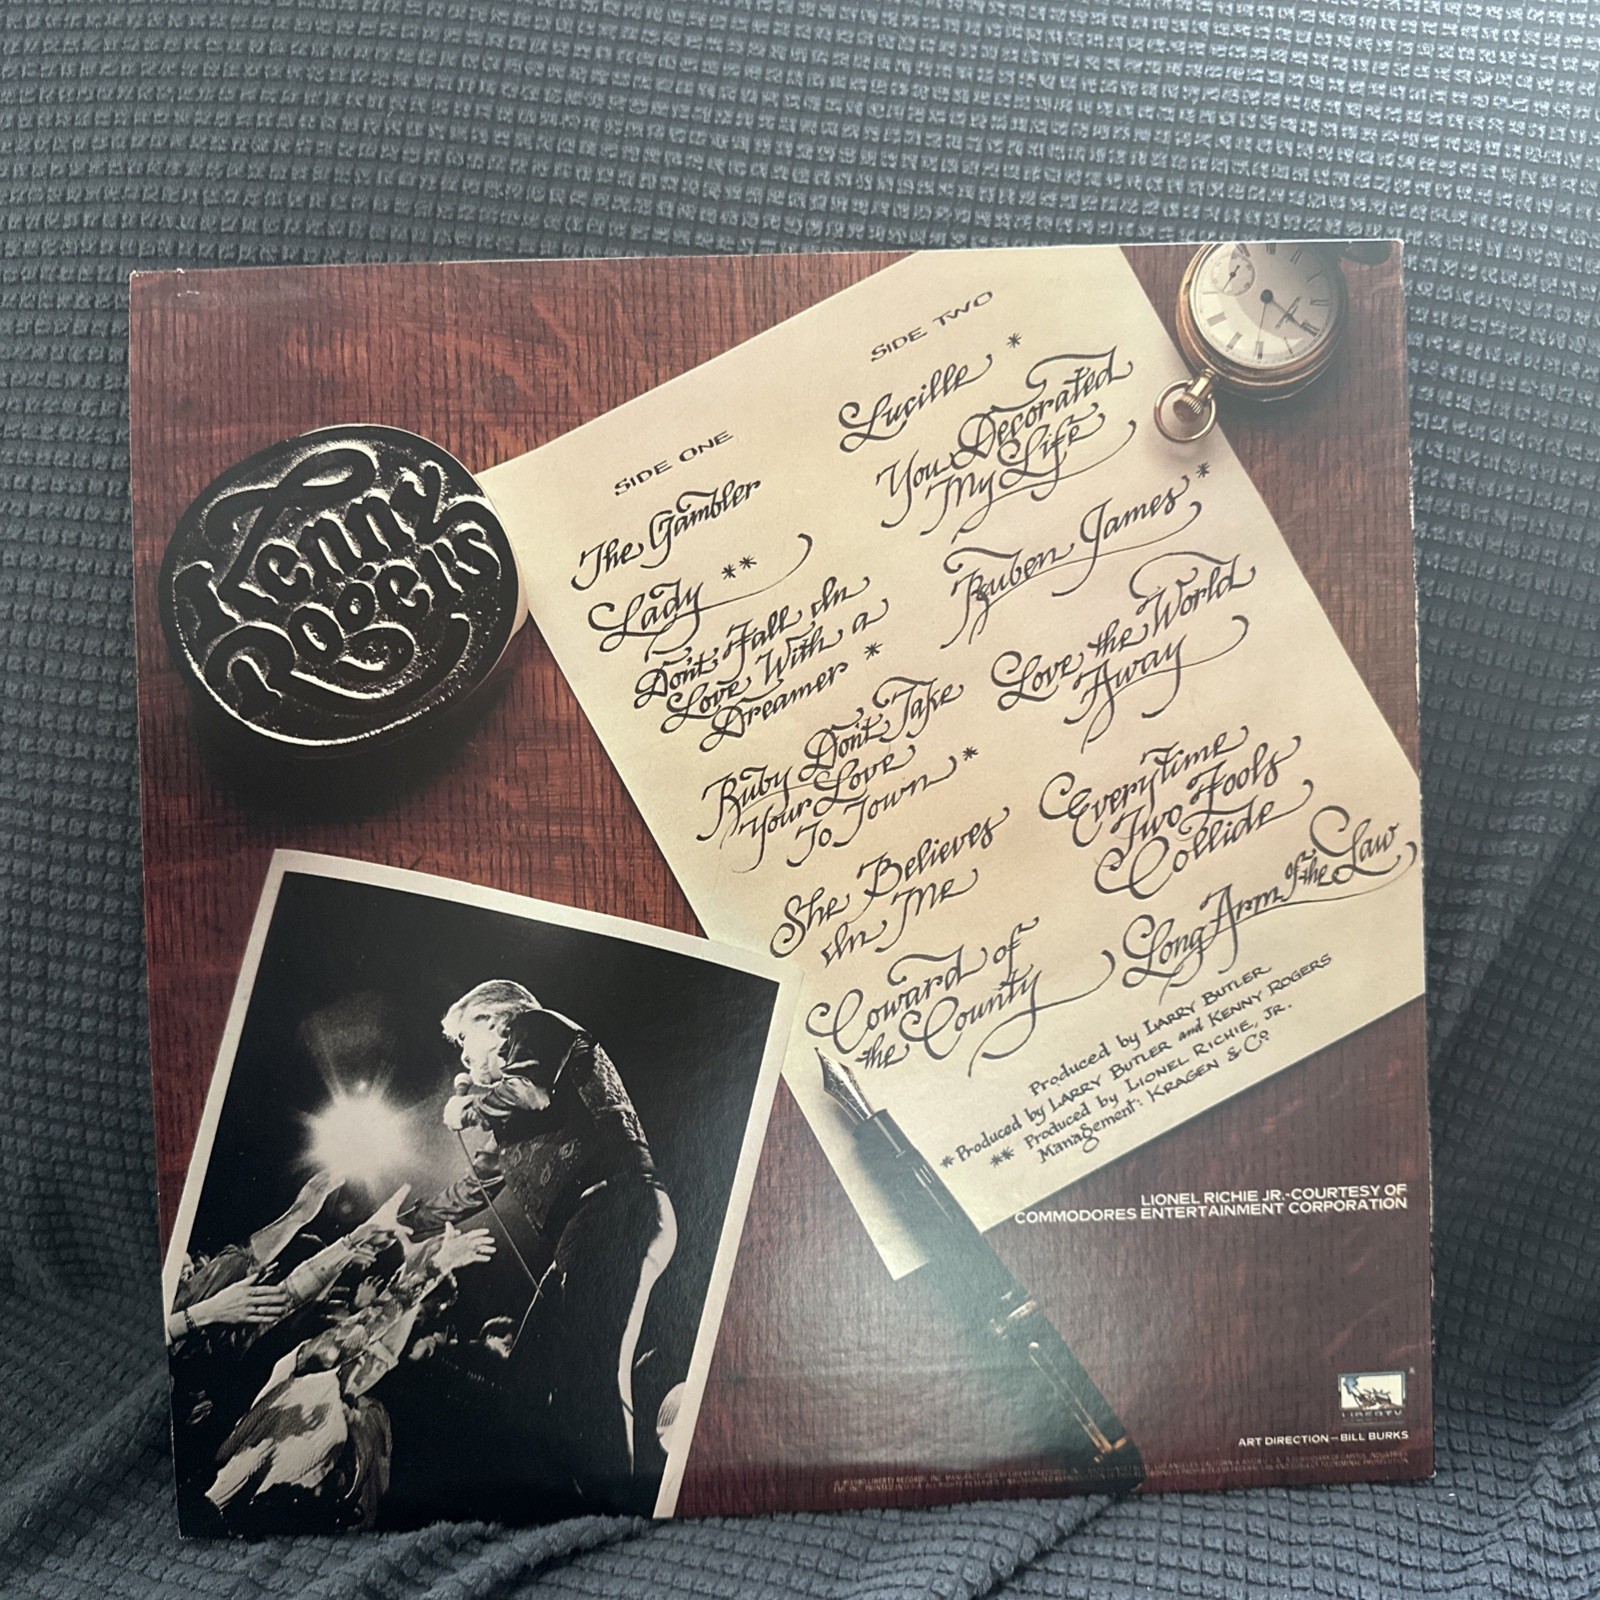 Kenny
Rogers
SIDE ONE
The Gambler
Lady **
Don't Fall In
Love With a
Dreamer *
Ruby Don't Take
Your Love
To Town *
She Believes
In Me
Coward of
the County
SIDE TWO
Lucille *
You Decorated
My Life
Reuben James *
Love the World
Away
Everytime
Two Fools
Collide
Long Arm of the Law
Produced by LARRY BUTLER
*Produced by LARRY BUTLER and KENNY ROGERS
** Produced by LIONEL RICHIE, JR.
Management: KRAGEN & Co.
LIONEL RICHIE JR.-COURTESY OF
COMMODORES ENTERTAINMENT CORPORATION
LIBERTY
ART DIRECTION—BILL BURKS